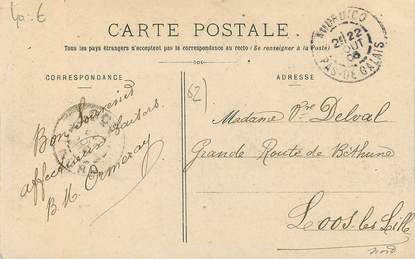 40-6
CARTE POSTALE
Tous les pays étrangers n'acceptent pas la correspondance au recto (Se renseigner à la Poste)
CORRESPONDANCE
ADRESSE
AUDRUICQ
22
AOUT
PAS-DE-CALAIS
62
Bon Souvenir
affectueux baisers
B. M. Ormeray
Madame Vve Delval
Grande Route de Béthune
Loos-les-Lille
Nord